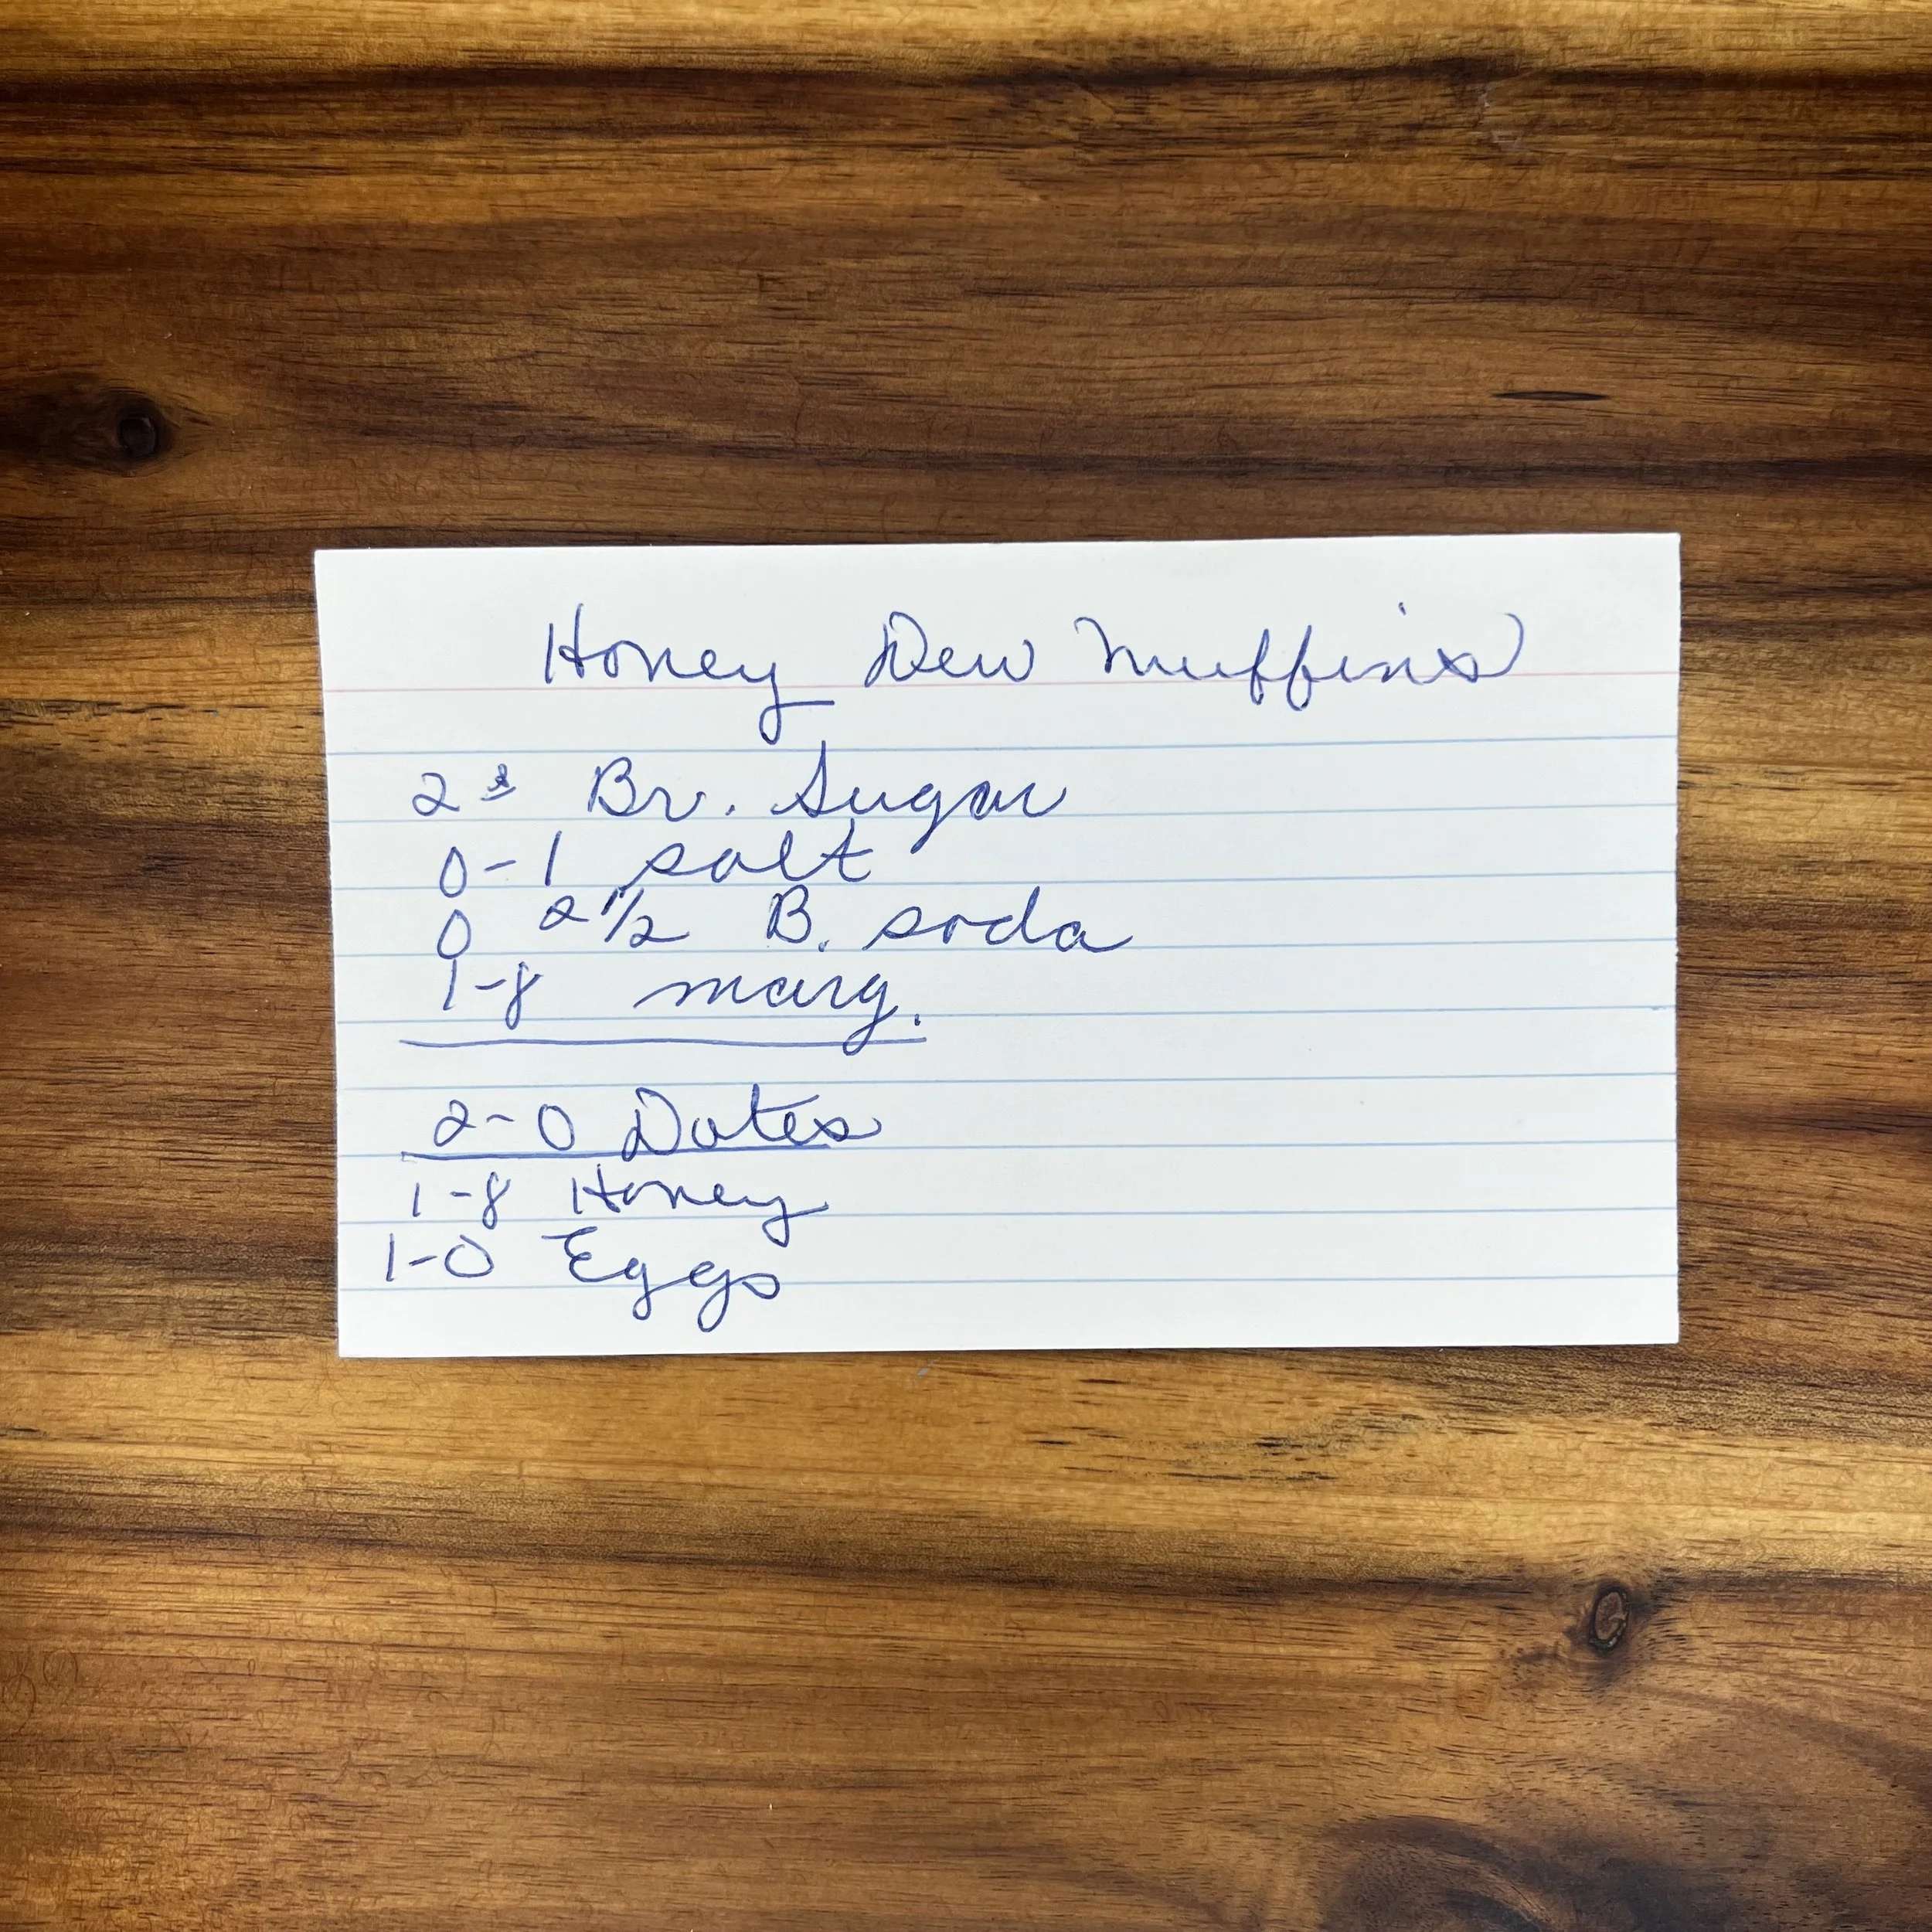 Honey Dew Muffins
2 Br. Sugar
0-1 salt
0 2 1/2 B. soda
1-8 marg.
2-0 Dates
1-8 Honey
1-0 Eggs